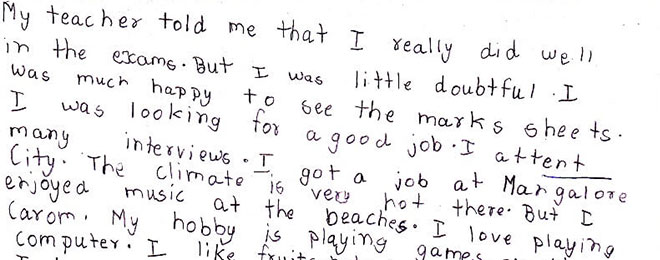 My teacher told me that I really did well
in the exams. But I was little doubtful. I
was much happy to see the marks sheets.
I was looking for a good job. I attent
many interviews. I got a job at Mangalore
City. The climate is very hot there. But I
enjoyed music at the beaches. I love playing
Carom. My hobby is playing games
computer. I like fruits